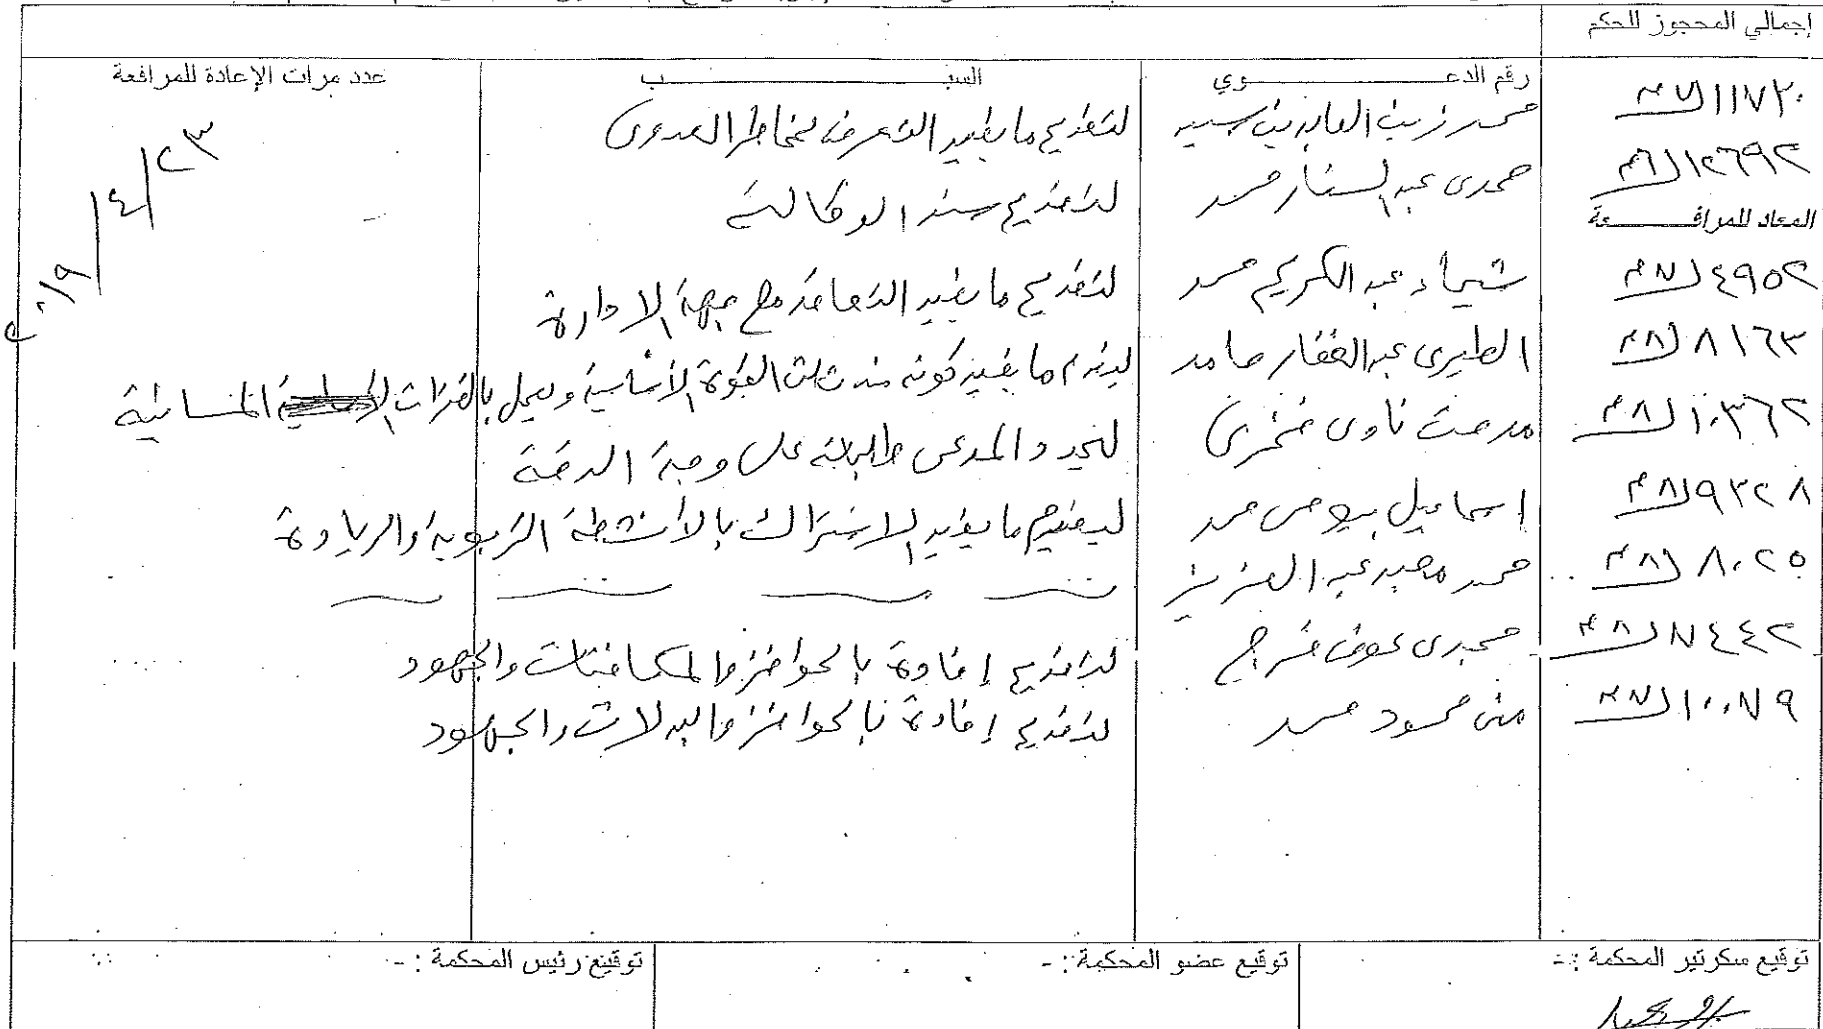 إجمالي المحجوز للحكم
رقم الدعــوي السبــب عدد مرات الإعادة للمرافعة
١١٧٣٠ / ٧ق محمد زين العابدين سيد لتقديم ما يفيد التعرض لمخاطر العدوى
١٢٦٩٢ / ٦ق حمدى عبد الستار محمد لتقديم سند الوكالة
المعاد للمرافــعة
٢٠١٩/٤/٢٣
٤٩٥٢ / ٧ق شيماء عبد الكريم محمد لتقديم ما يفيد التعاقد مع جهة الادارة
٨١٦٣ / ٨ق الطيرى عبد الغفار حامد ليقدم ما يفيد كونه من ثلث القوة الأساسية ويعمل بالفترات المسائية
١٠٣٦٢ / ٨ق مدحت ناوى فخرى ليحدد المدعى طلباته على وجه الدقة
٩٣٢٨ / ٨ق اسماعيل بيومى محمد ليقدم ما يفيد الاشتراك بالأنشطة التربوية والريادة
٨٠٢٥ / ٨ق محمد عبد العزيز
٧٤٤٢ / ٨ق مجدى عوض فرج لتقديم إفادة بالحوافز والمكافئات والجهود
١٠٠٧٩ / ٧ق منى محمود محمد لتقديم إفادة بالحوافز والبدلات والجهود
توقيع سكرتير المحكمة :- توقيع عضو المحكمة :- توقيع رئيس المحكمة :-